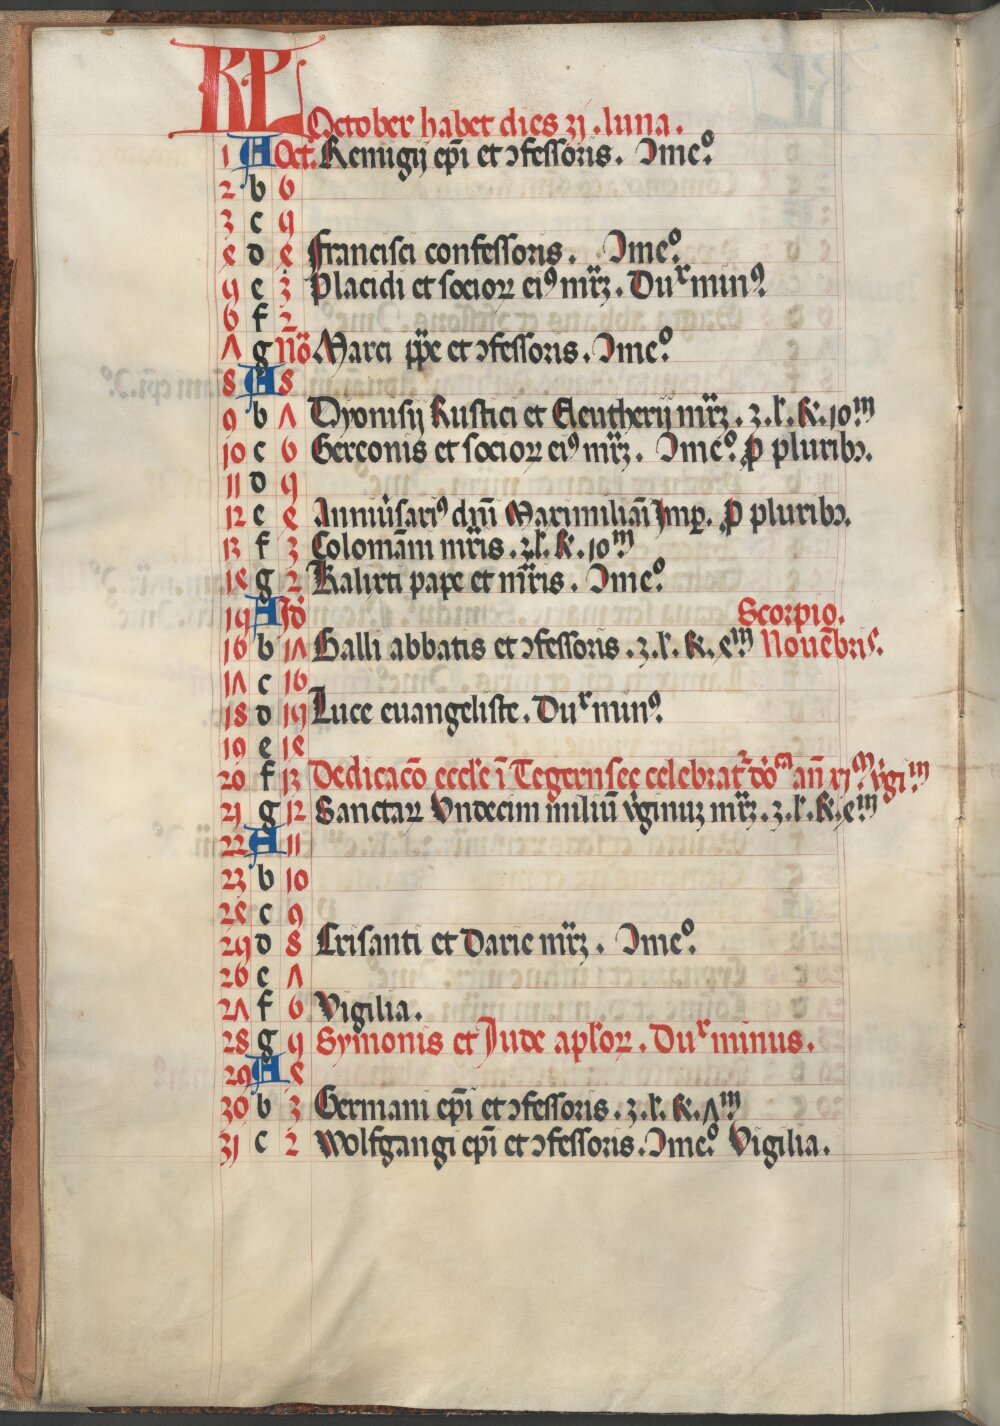 KL
October habet dies 31 . luna .
1 A Oct. Remigij ep̄i et ɔfessoris . Ime⁹.
2 b 6
3 c 5
4 d 4 Francisci confessoris . Ime⁹.
5 e 3 Placidi et socioꝝ ei⁹ mr̄ꝫ . Duˣ min⁹.
6 f 2
7 g No᷑ Marci pp̄e et ɔfessoris . Ime⁹.
8 A 8
9 b 7 Dyonisij Rustici et Eleutherij mr̄ꝫ . 3 . l'. K. 10ᵐ
10 c 6 Gereonis et socioꝝ ei⁹ mr̄ꝫ . Ime⁹. ꝓ pluribꝫ.
11 d 5
12 e 4 Anniu'sari⁹ dn̄i Maximiliāi Imꝑ. ꝓ pluribꝫ.
13 f 3 Colomāni mr̄is . 3 l'. K. 10ᵐ
14 g 2 Kalixti pape et mr̄is . Ime⁹.
15 A Id᷑ Scorpio.
16 b 17 Galli abbatis et ɔfessoris . 3 . l'. K. 4ᵐ Nouēbris.
17 c 16
18 d 15 Luce euangeliste . Duˣ min⁹.
19 e 14
20 f 13 Dedicacō eccl'e ī Tegernsee celebrat᷑ do᷑ᵃᵐ añ xiᵐ v'giᵐ
21 g 12 Sanctaꝝ Vndecim miliū v'ginuꝫ mr̄ꝫ . 3 . l'. K. 4ᵐ
22 A 11
23 b 10
24 c 9
25 d 8 Crisanti et Darie mr̄ꝫ . Ime⁹.
26 e 7
27 f 6 Vigilia .
28 g 5 Symonis et Jude apl'oꝝ . Duˣ minus .
29 A 4
30 b 3 Germani ep̄i et ɔfessoris . 3 . l'. K. 7ᵐ
31 c 2 Wolfgangi ep̄i et ɔfessoris . Ime⁹. Vigilia .